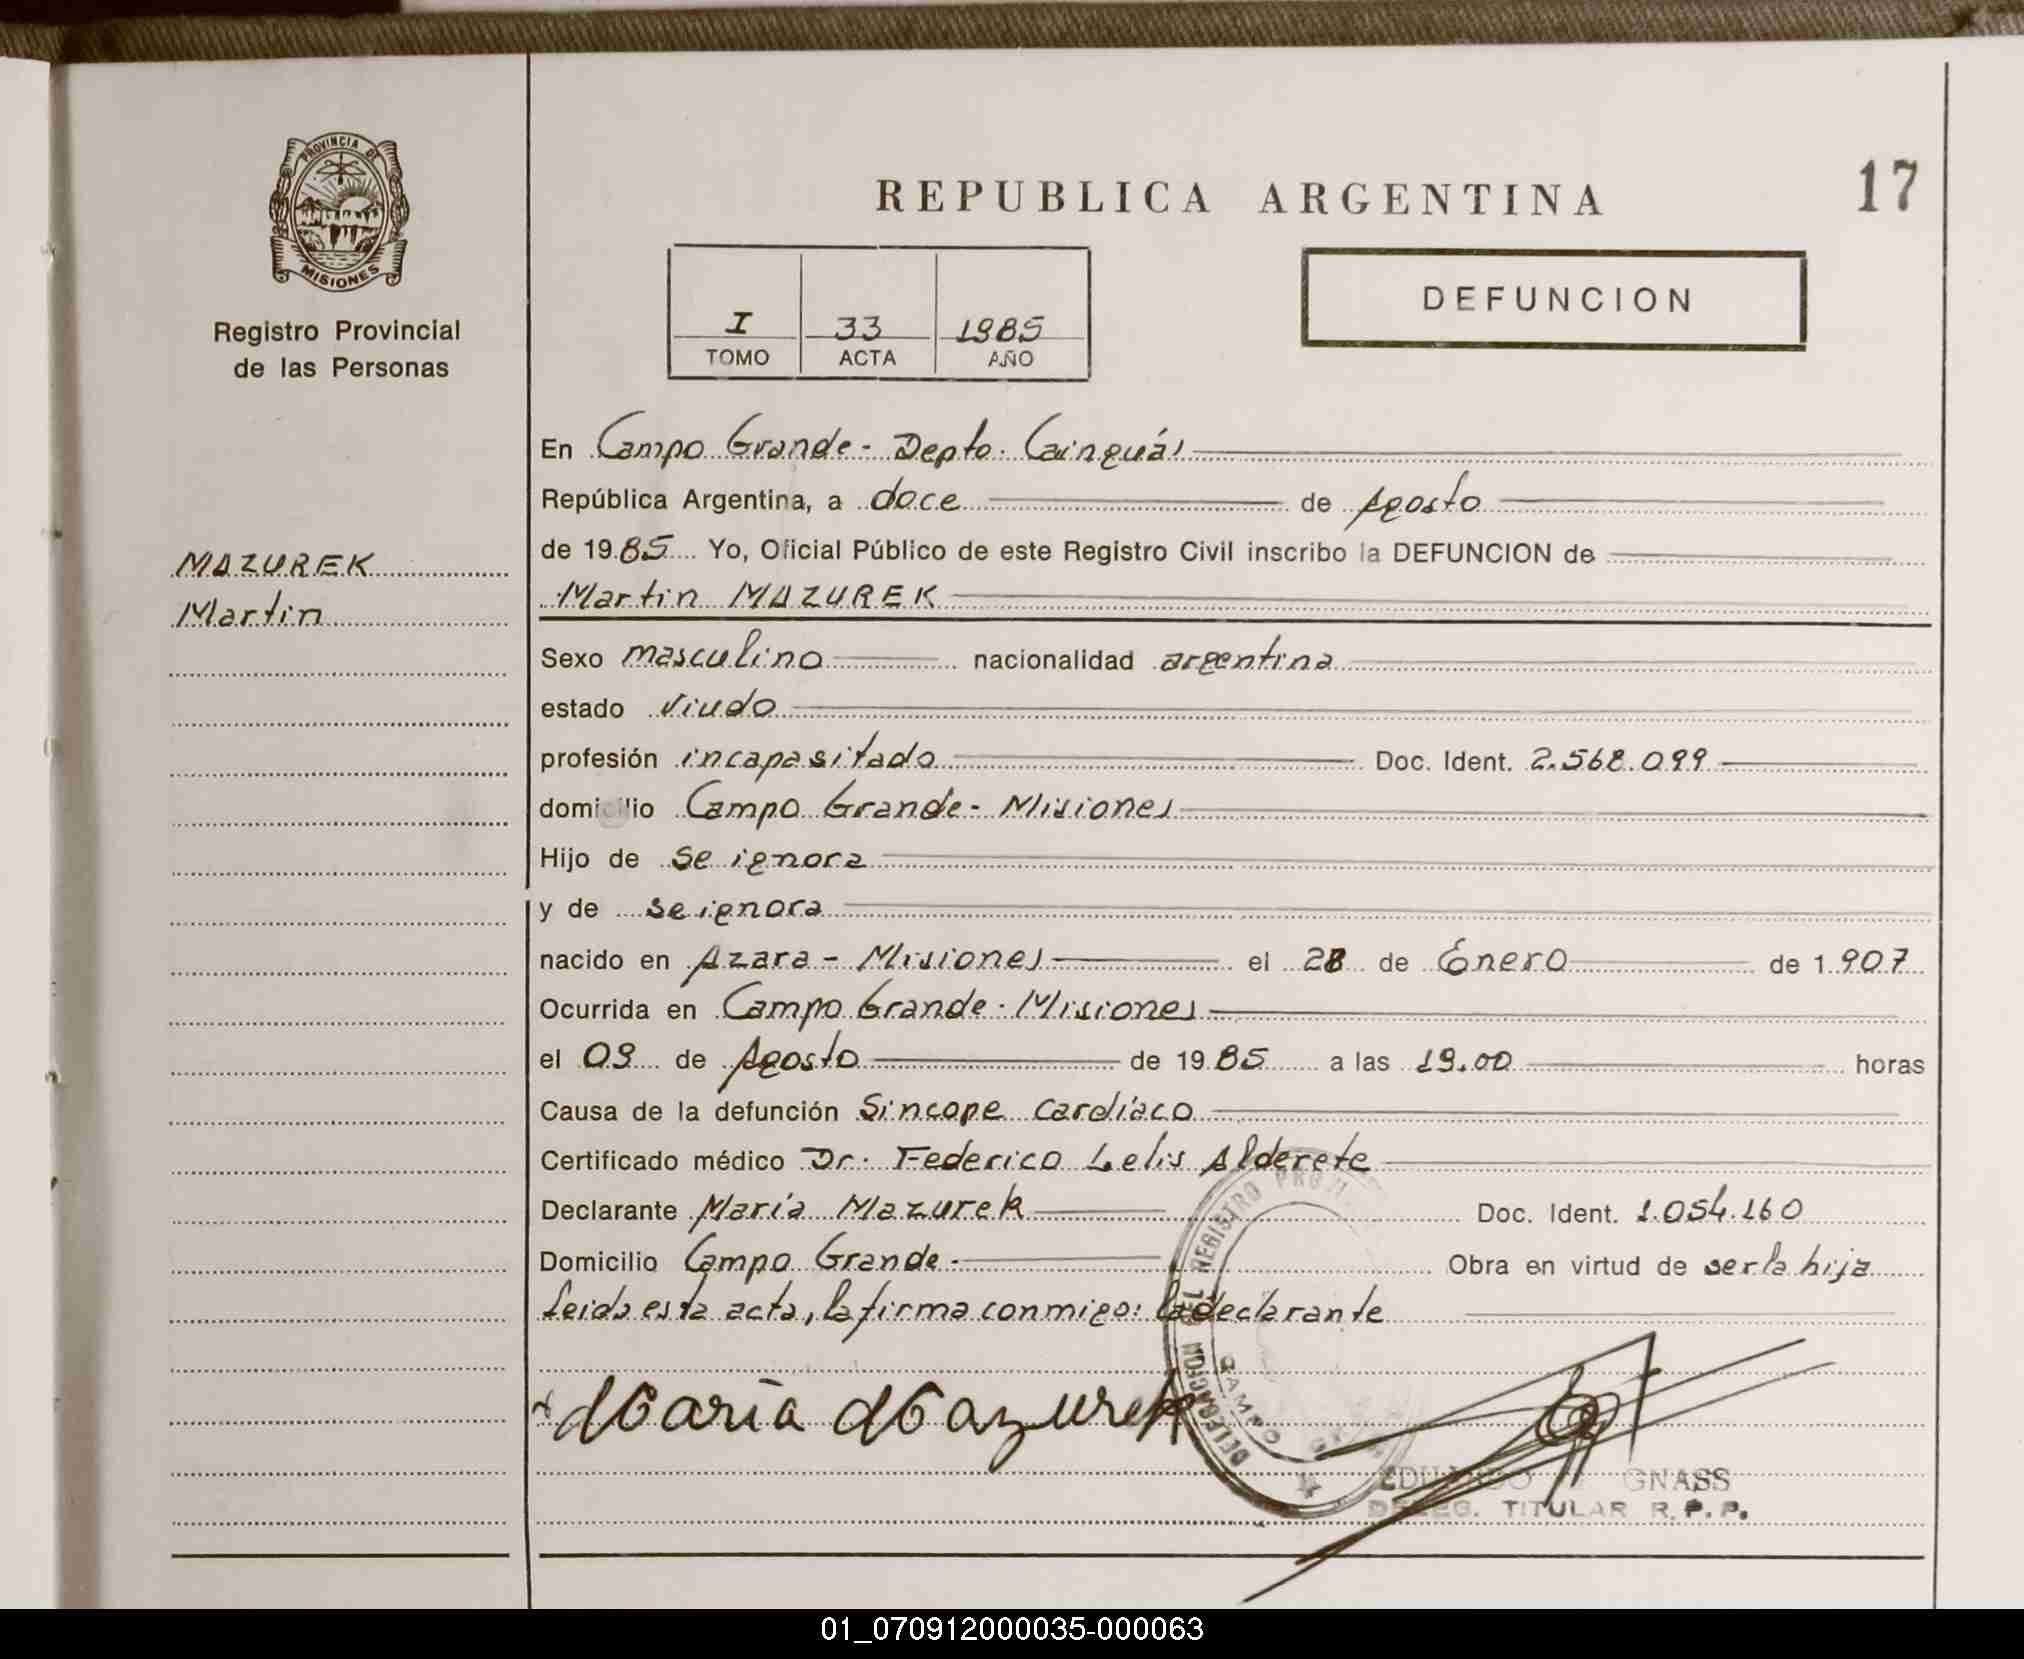 PROVINCIA DE
MISIONES
Registro Provincial
de las Personas
MAZUREK
Martin
REPUBLICA ARGENTINA
17
I 33 1985
TOMO ACTA AÑO
DEFUNCION
En Campo Grande - Depto. Cainguás
República Argentina, a doce de Agosto
de 19 85 Yo, Oficial Público de este Registro Civil inscribo la DEFUNCION de
Martin MAZUREK
Sexo masculino nacionalidad argentina
estado viudo
profesión incapasitado Doc. Ident. 2.568.099
domicilio Campo Grande - Misiones
Hijo de se ignora
y de se ignora
nacido en Azara - Misiones el 28 de Enero de 1.907
Ocurrida en Campo Grande - Misiones
el 09 de Agosto de 19 85 a las 19.00 horas
Causa de la defunción Sincope cardíaco
Certificado médico Dr. Federico Lelis Alderete
Declarante María Mazurek Doc. Ident. 1.054.160
Domicilio Campo Grande - Obra en virtud de ser la hija
Leida esta acta, la firma conmigo: la declarante
María Mazurek
DELEGACION DEL REGISTRO PROV
CAMPO
EDUARDO GNASS
DELEG. TITULAR R.P.P.
01_070912000035-000063